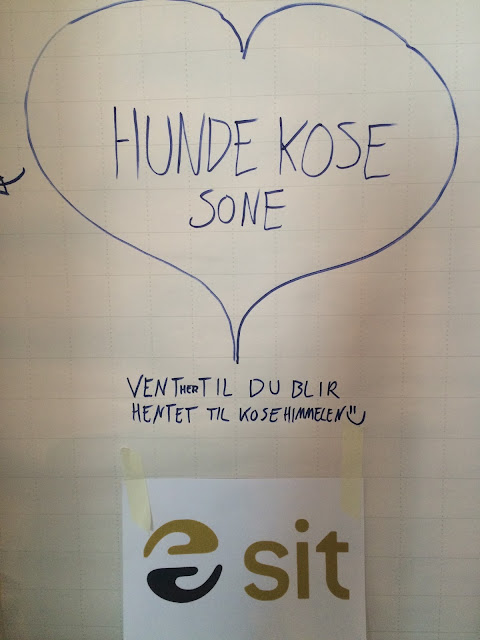 HUNDE KOSE
SONE
VENT HER TIL DU BLIR
HENTET TIL KOSEHIMMELEN
sit